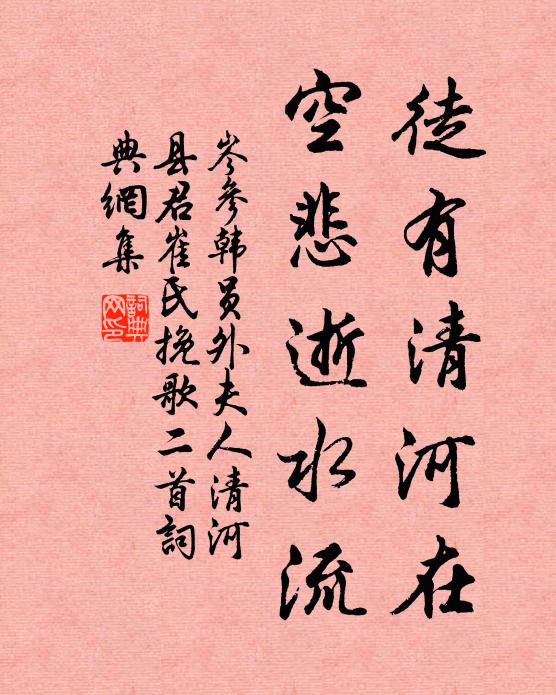 徒有清河在
空悲逝水流
岑參韩員外夫人清河
县君崔氏挽歌二首詞
典網集
詞典网印